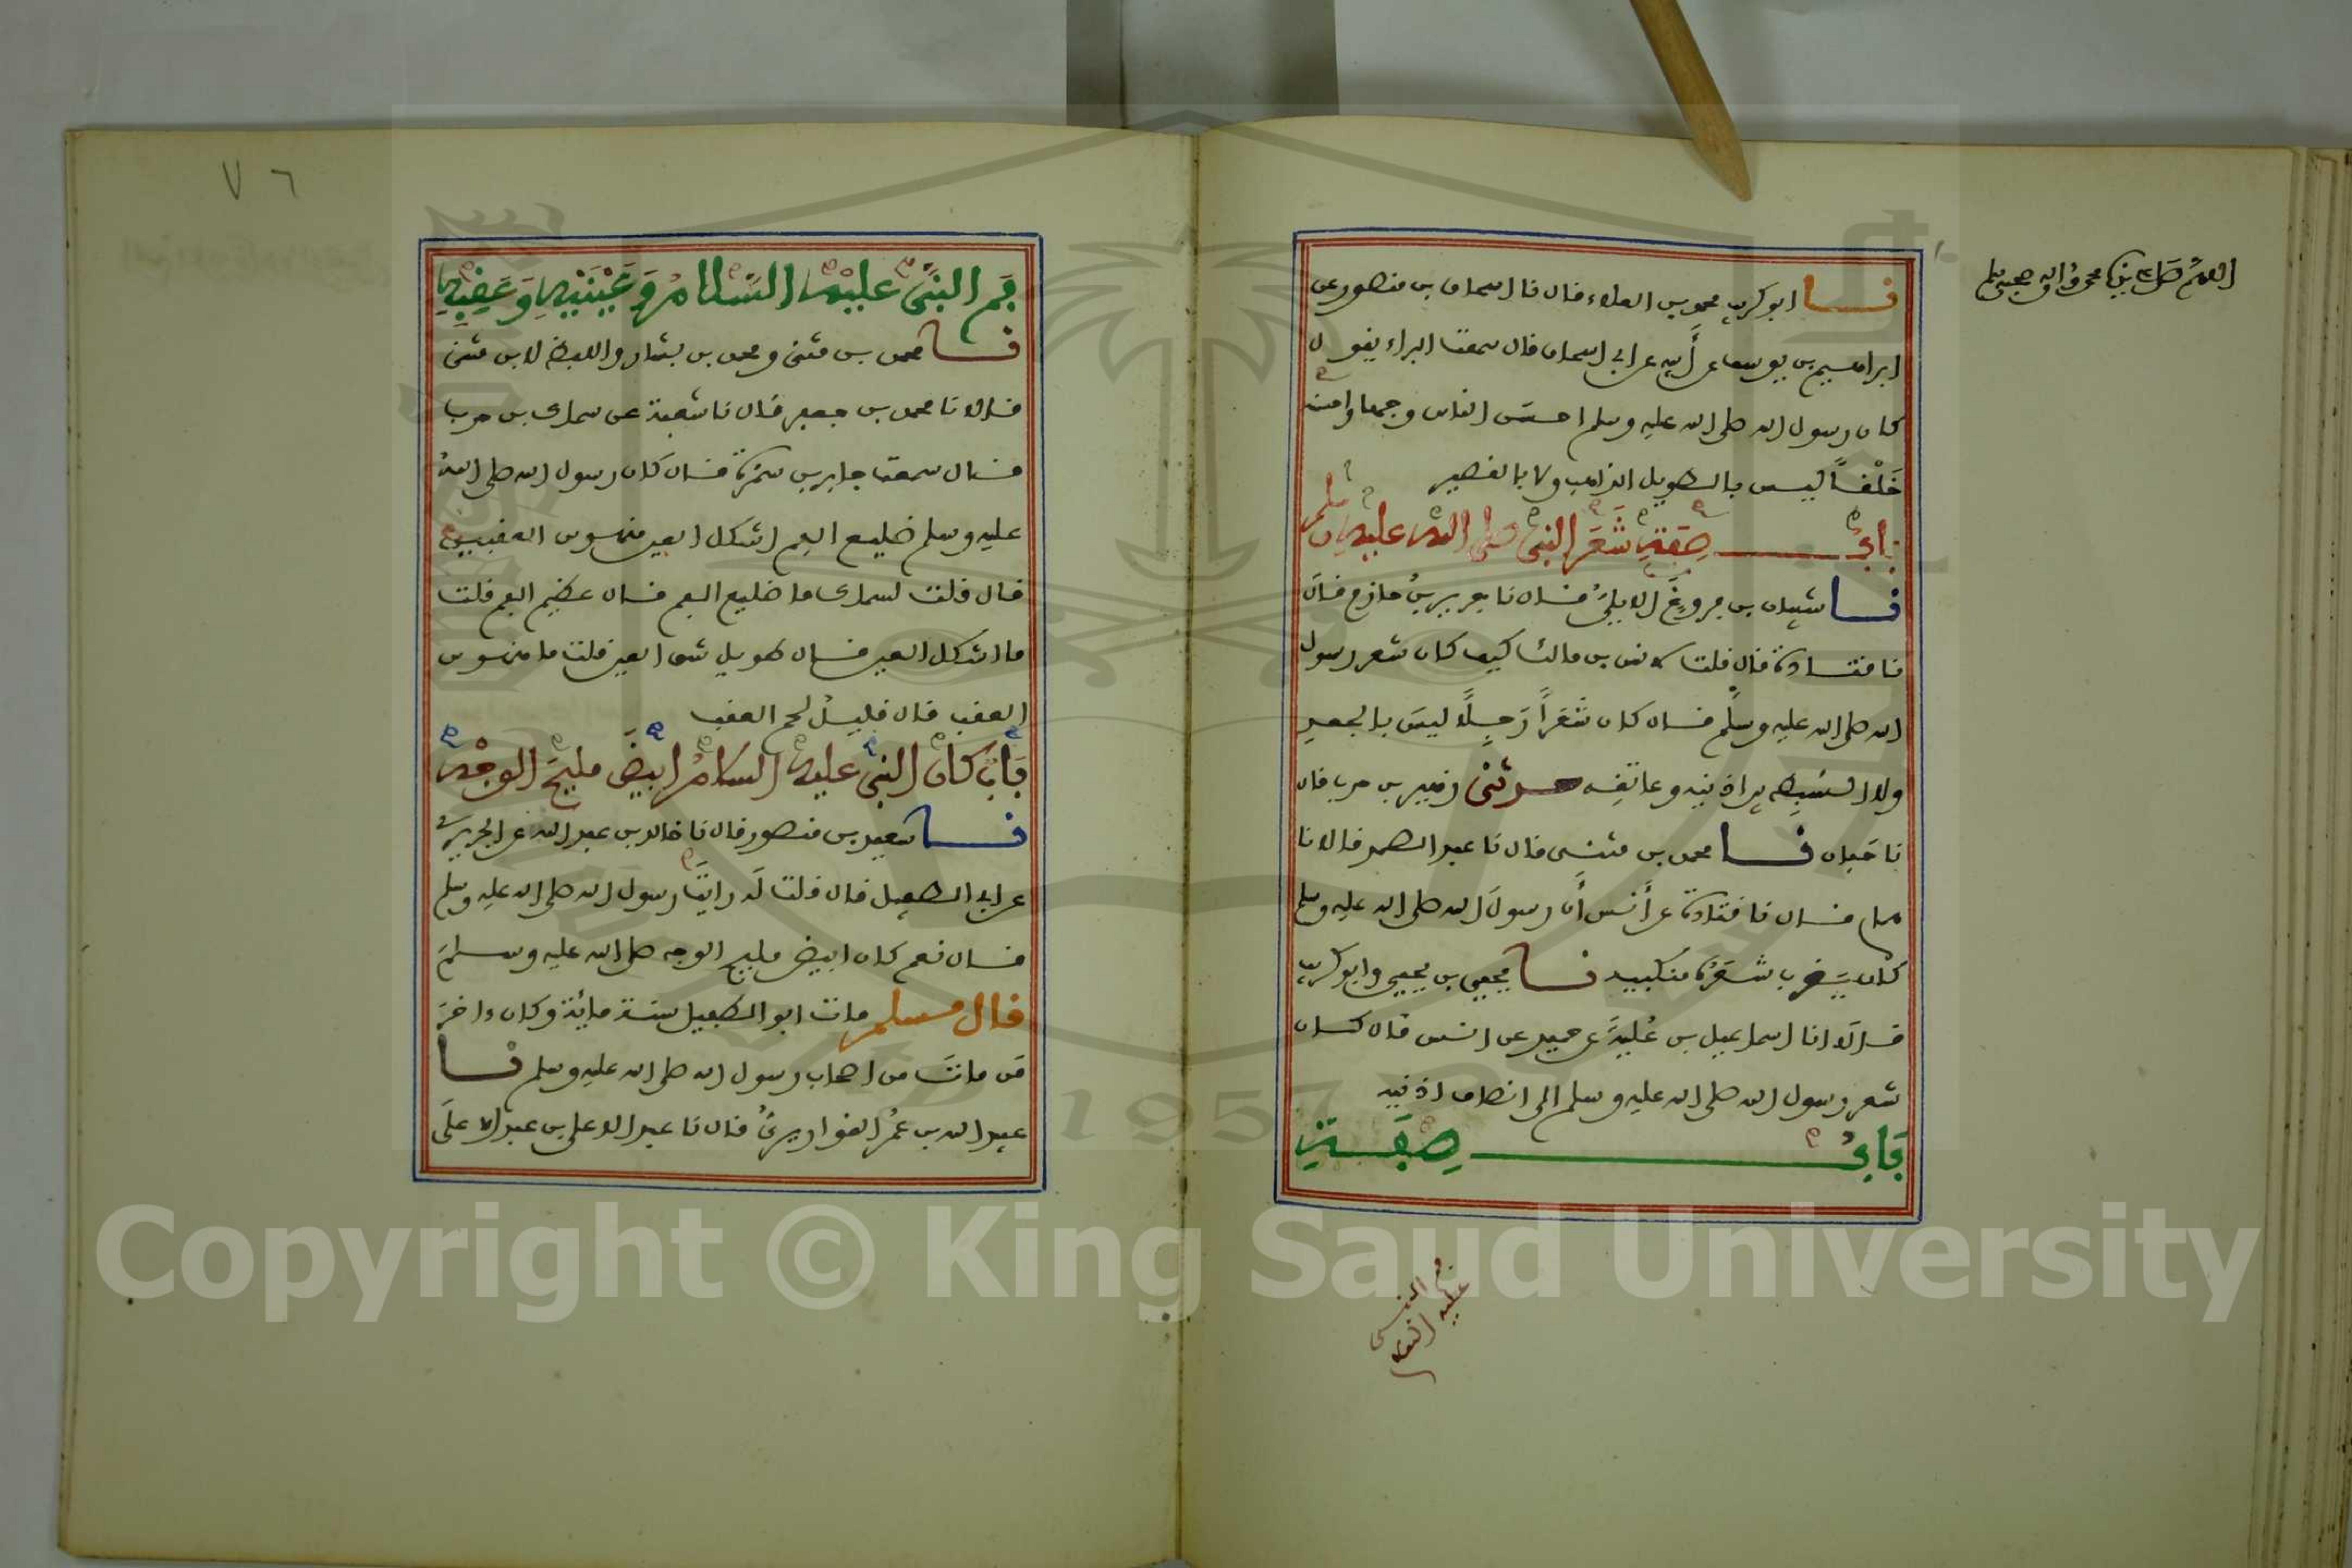 اللهم صل على نبينا محمد وآله وصحبه وسلم
نا ابو كريب محمد بن العلاء قال نا اسحاق بن منصور عن
ابراهيم بن يوسف عن أبيه عن ابي اسحاق قال سمعت البراء يقول
كان رسول الله صلى الله عليه وسلم احسن الناس وجها واحسنه
خَلْقاً ليس بالطويل الذاهب ولا بالقصير
بابُ صِفَةِ شَعَر النبي صلى الله عليه وسلم
نا شيبان بن فروخَ الابليُّ قال نا جرير بنُ حازم قال
نا قتادة قال قلت لانس بن مالك كيف كان شعر رسول
الله صلى الله عليه وسلم قال كان شَعَراً رَجِلاً ليسَ بالجعد
ولا السَبِط بين اذنيه وعاتقه حدثنى زهير بن حرب قال
نا حَبان نا محمد بن مثنى قال نا عبد الصمد قالا نا
همام قال نا قتادة عن أنس أن رسولَ الله صلى الله عليه وسلم
كان يَضرب شَعَرُه منكبيه نا يحيى بن يحيى وابو كريب
قالَا نا اسماعيل بن عُليةَ عن حميد عن انس قال كان
شعر رسول الله صلى الله عليه وسلم الى انصاف اذنيه
بَابُ صِفَةِ
فم النبي
عليه السلام
٧٦
فَم النبيِّ عليْه السَّلامُ وَعَيْنَيْهِ وَعَقِبِهِ
نا محمد بن مثنى ومحمد بن بشار واللفظ لابن مثنى
قالا نا محمد بن جعفر قال نا شعبة عن سماك بن حرب
قال سمعت جابر بن سَمُرَة قال كان رسول الله صلى اللهُ
عليه وسلم ضليع الفم اشكل العين منهوس العقبين
قال قلت لسماك ما ضليع الفم قال عظيم الفم قلت
ما اشكل العين قال طويل شق العين قلت ما منهوس
العقب قال قليلُ لحم العقب
بَابٌ كان النبي عليه السلامُ ابيَضَ مليحَ الوجْه
نا سعيد بن منصور قال نا خالد بن عبد الله عن الجريري
عن ابي الطفيل قال قلت لَه رايتَ رسول الله صلى الله عليه وسلم
قال نعم كان ابيض مليح الوجه صلى الله عليه وسلمَ
قال مسلم مات ابو الطفيل سنة مائة وكان ءاخرَ
مَن ماتَ من اصحاب رسول الله صلى الله عليه وسلم نا
عبيد الله بن عُمَر القواريريُّ قال نا عبد الاعلى بن عبد الاعلَى
Copyright © King Saud University
1957